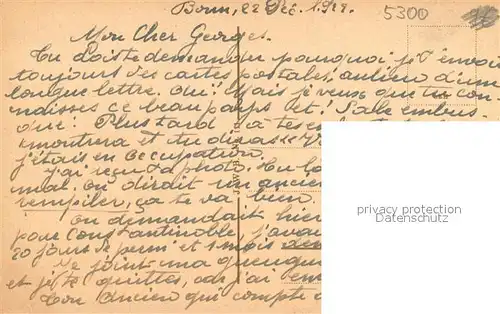 Bonn, 22 Déc. 1922. 5300
Mon Cher Georges.
Tu dois te demander pourquoi je t'envoie
toujours des cartes postales, au lieu d'une
longue lettre. Oui! Mais je veux que tu con-
naisses ce beau pays et! Sale embus-
qué! Plus tard à tes
montrera et tu diras
j'étais en Occupation.
J'ai reçu ta photo. Tu
mal. On dirait un ancien
rempiler, ça te va bien.
On demandait hier
pour Constantinople, j'avais
20 jours de permi et 1 mois
Je joint ma
et je te quittes, car j'ai
Ton Ancien qui compte
privacy protection
Datenschutz